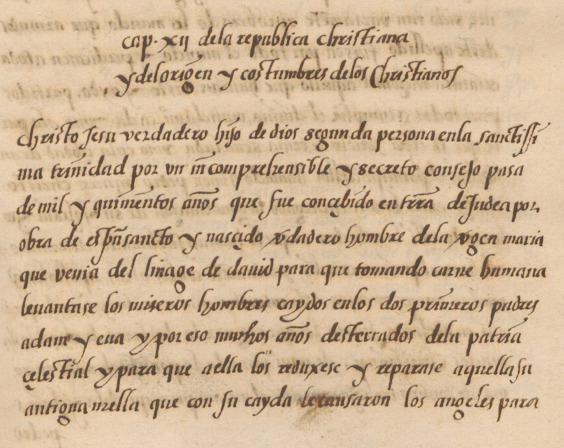 cap. XII de la republica christiana
y del origen y costumbres de los Christianos
christo Jesu verdadero hijo de dios segunda persona en la sanctissi
ma trinidad por un incomprehensible y secreto consejo pasa
de mil y quinientos años que fue concebido en trra de Judea por
obra de espũ sancto y nascido vdadero hombre de la vgen maria
que venia del linage de david para que tomando carne humana
levantase los miseros hombres caydos en los dos primeros padres
adam y eva y por eso muchos años desterrados de la patria
çelestial y para que a ella los reduxese y reparase aquella su
antigua que con su cayda los angeles para